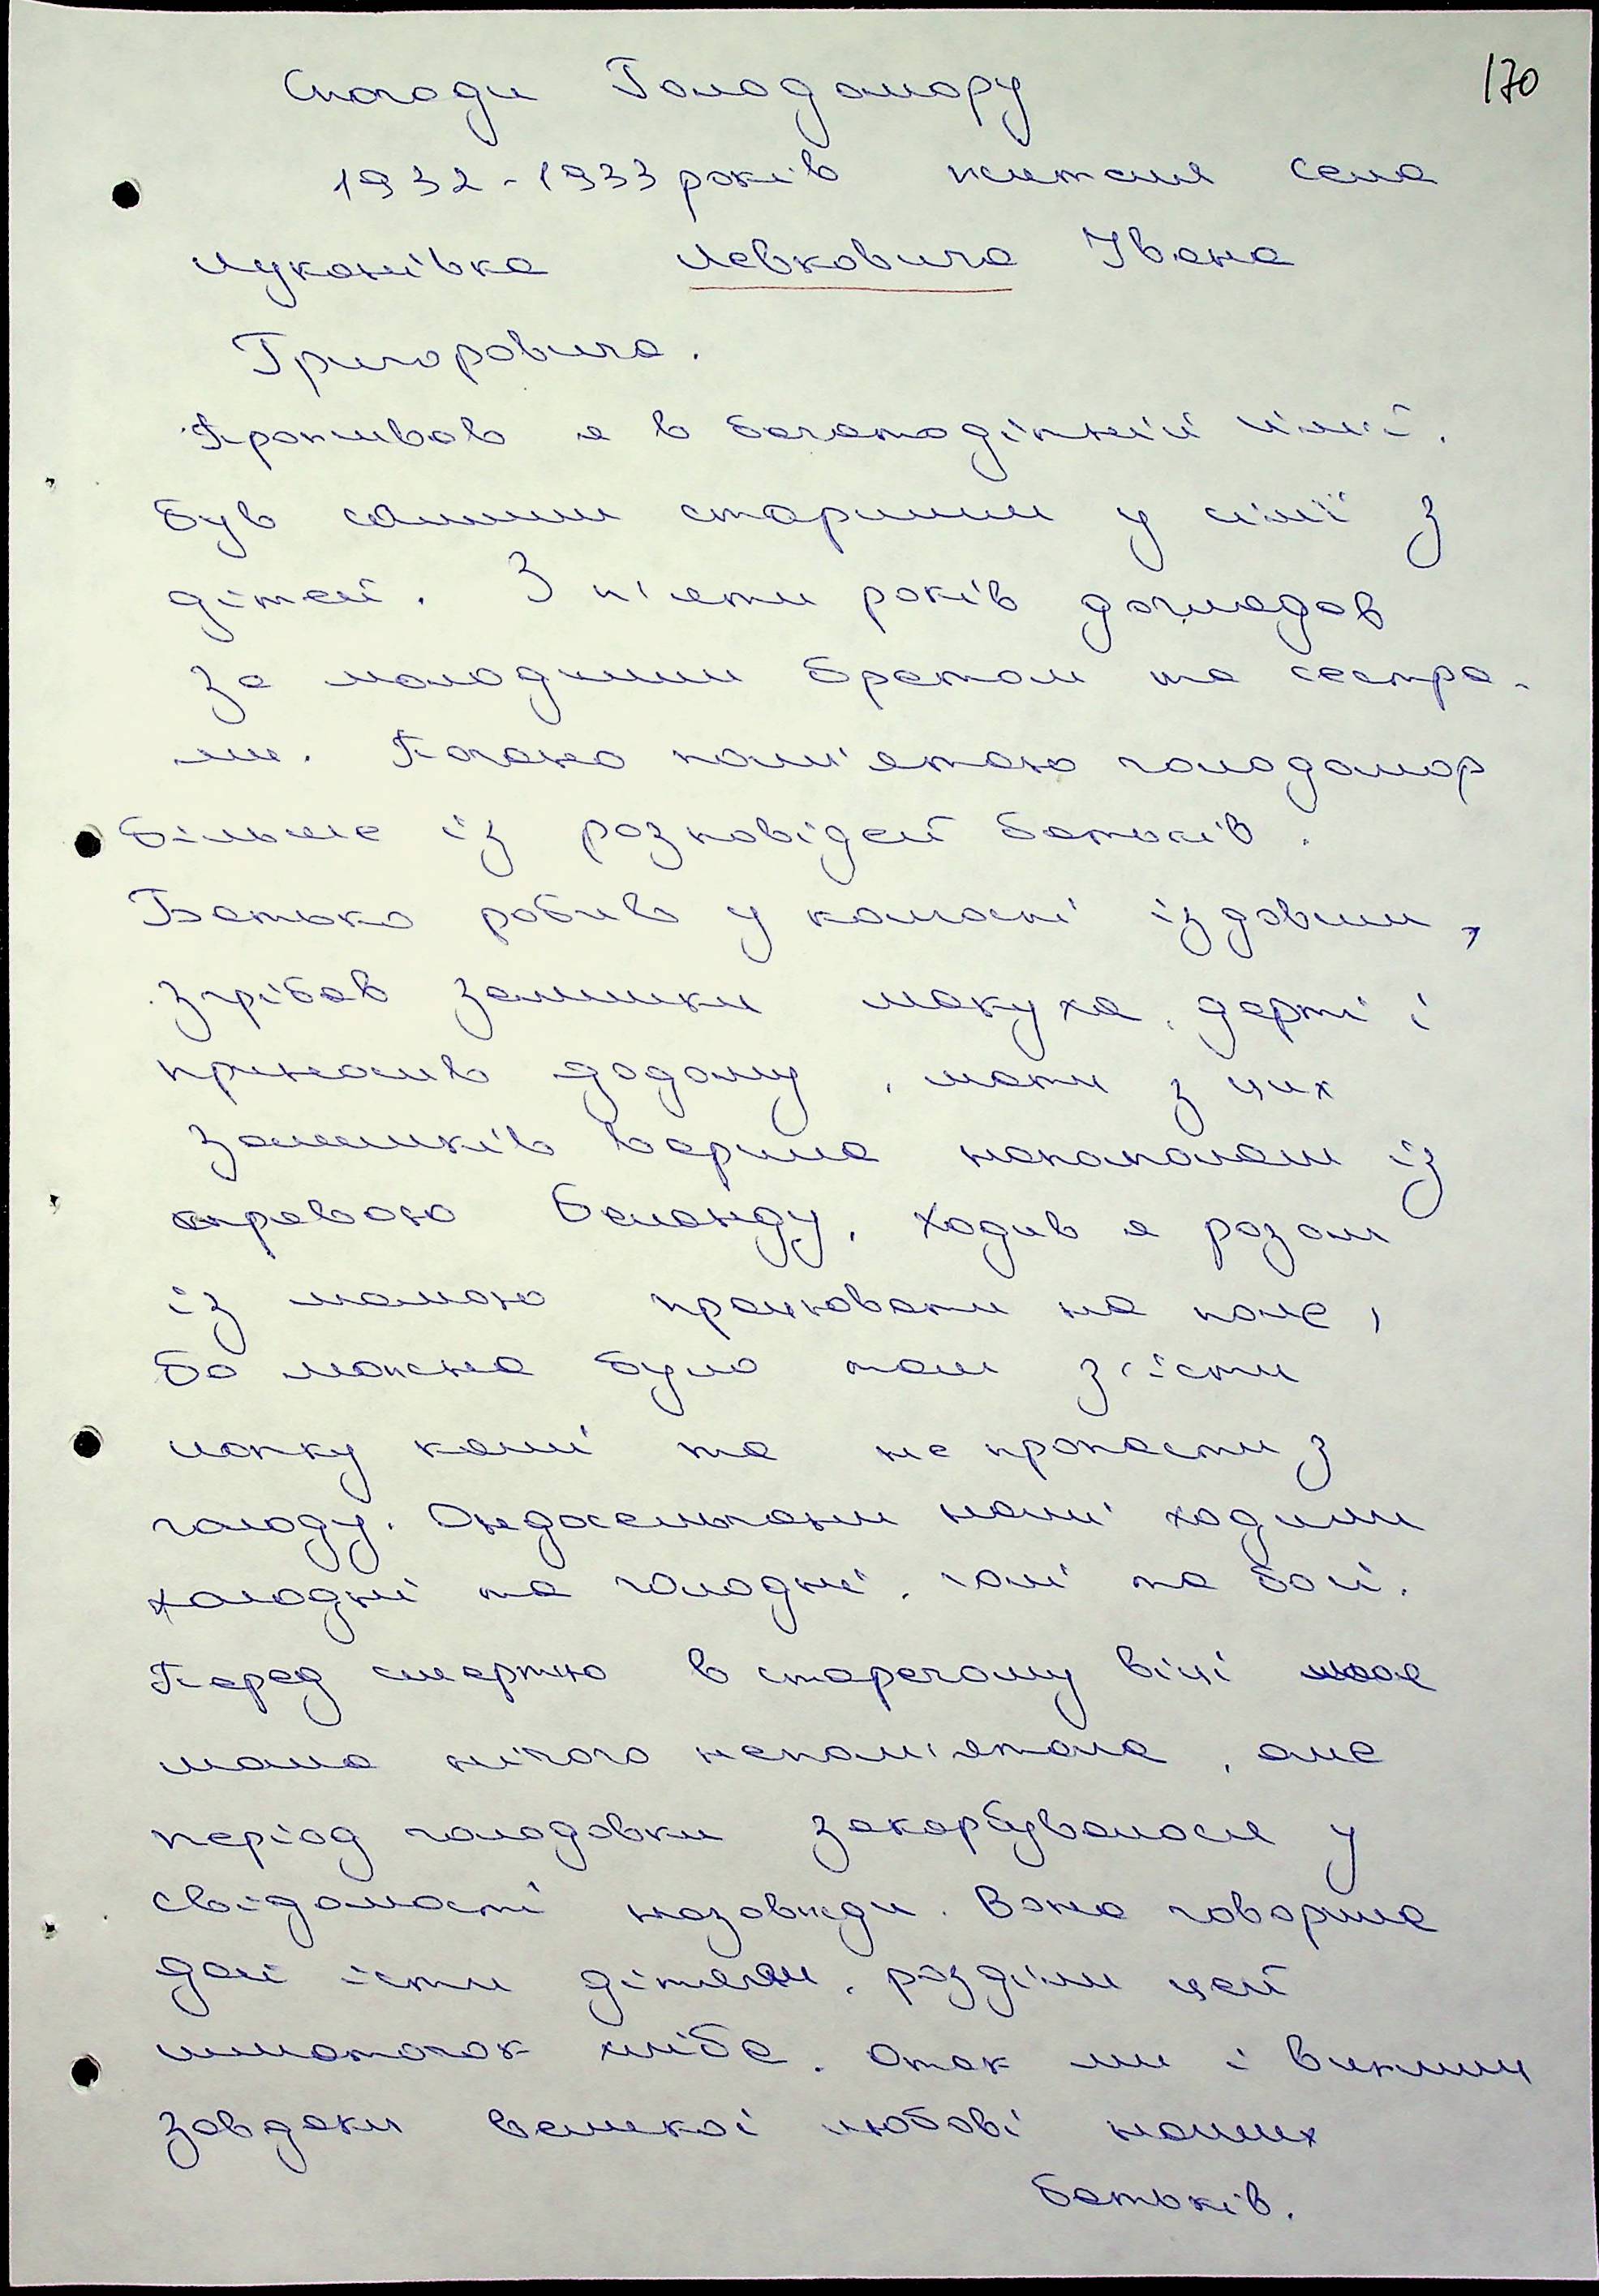 170
Спогади Голодомору
1932-1933 років жителя села
Луканівка Левковича Івана
Григоровича.
Проживав я в багатодітній сім'ї.
був самим старшим у сім'ї з
дітей. З п'яти років доглядав
за молодшим братом та сестра-
ми. Погано пам'ятаю голодомор
більше із розповідей батьків.
Батько робив у колгоспі їздовим,
згрібав залишки макуха, дерті і
приносив додому, мати з цих
залишків варила напополам із
травою баланду. Ходив я разом
із мамою працювати на поле,
бо можна було там з'їсти
ложку каші та не пропасти з
голоду. Односельчани наші ходили
холодні та голодні, голі та босі.
Перед смертю в старечому віці моя
мама нічого непам'ятала, але
період голодовки закарбувалося у
свідомості назовжди. Вона говорила
дай їсти дітям, розділи цей
шматочок хліба. Отак ми і вижили
завдяки великої любові наших
батьків.